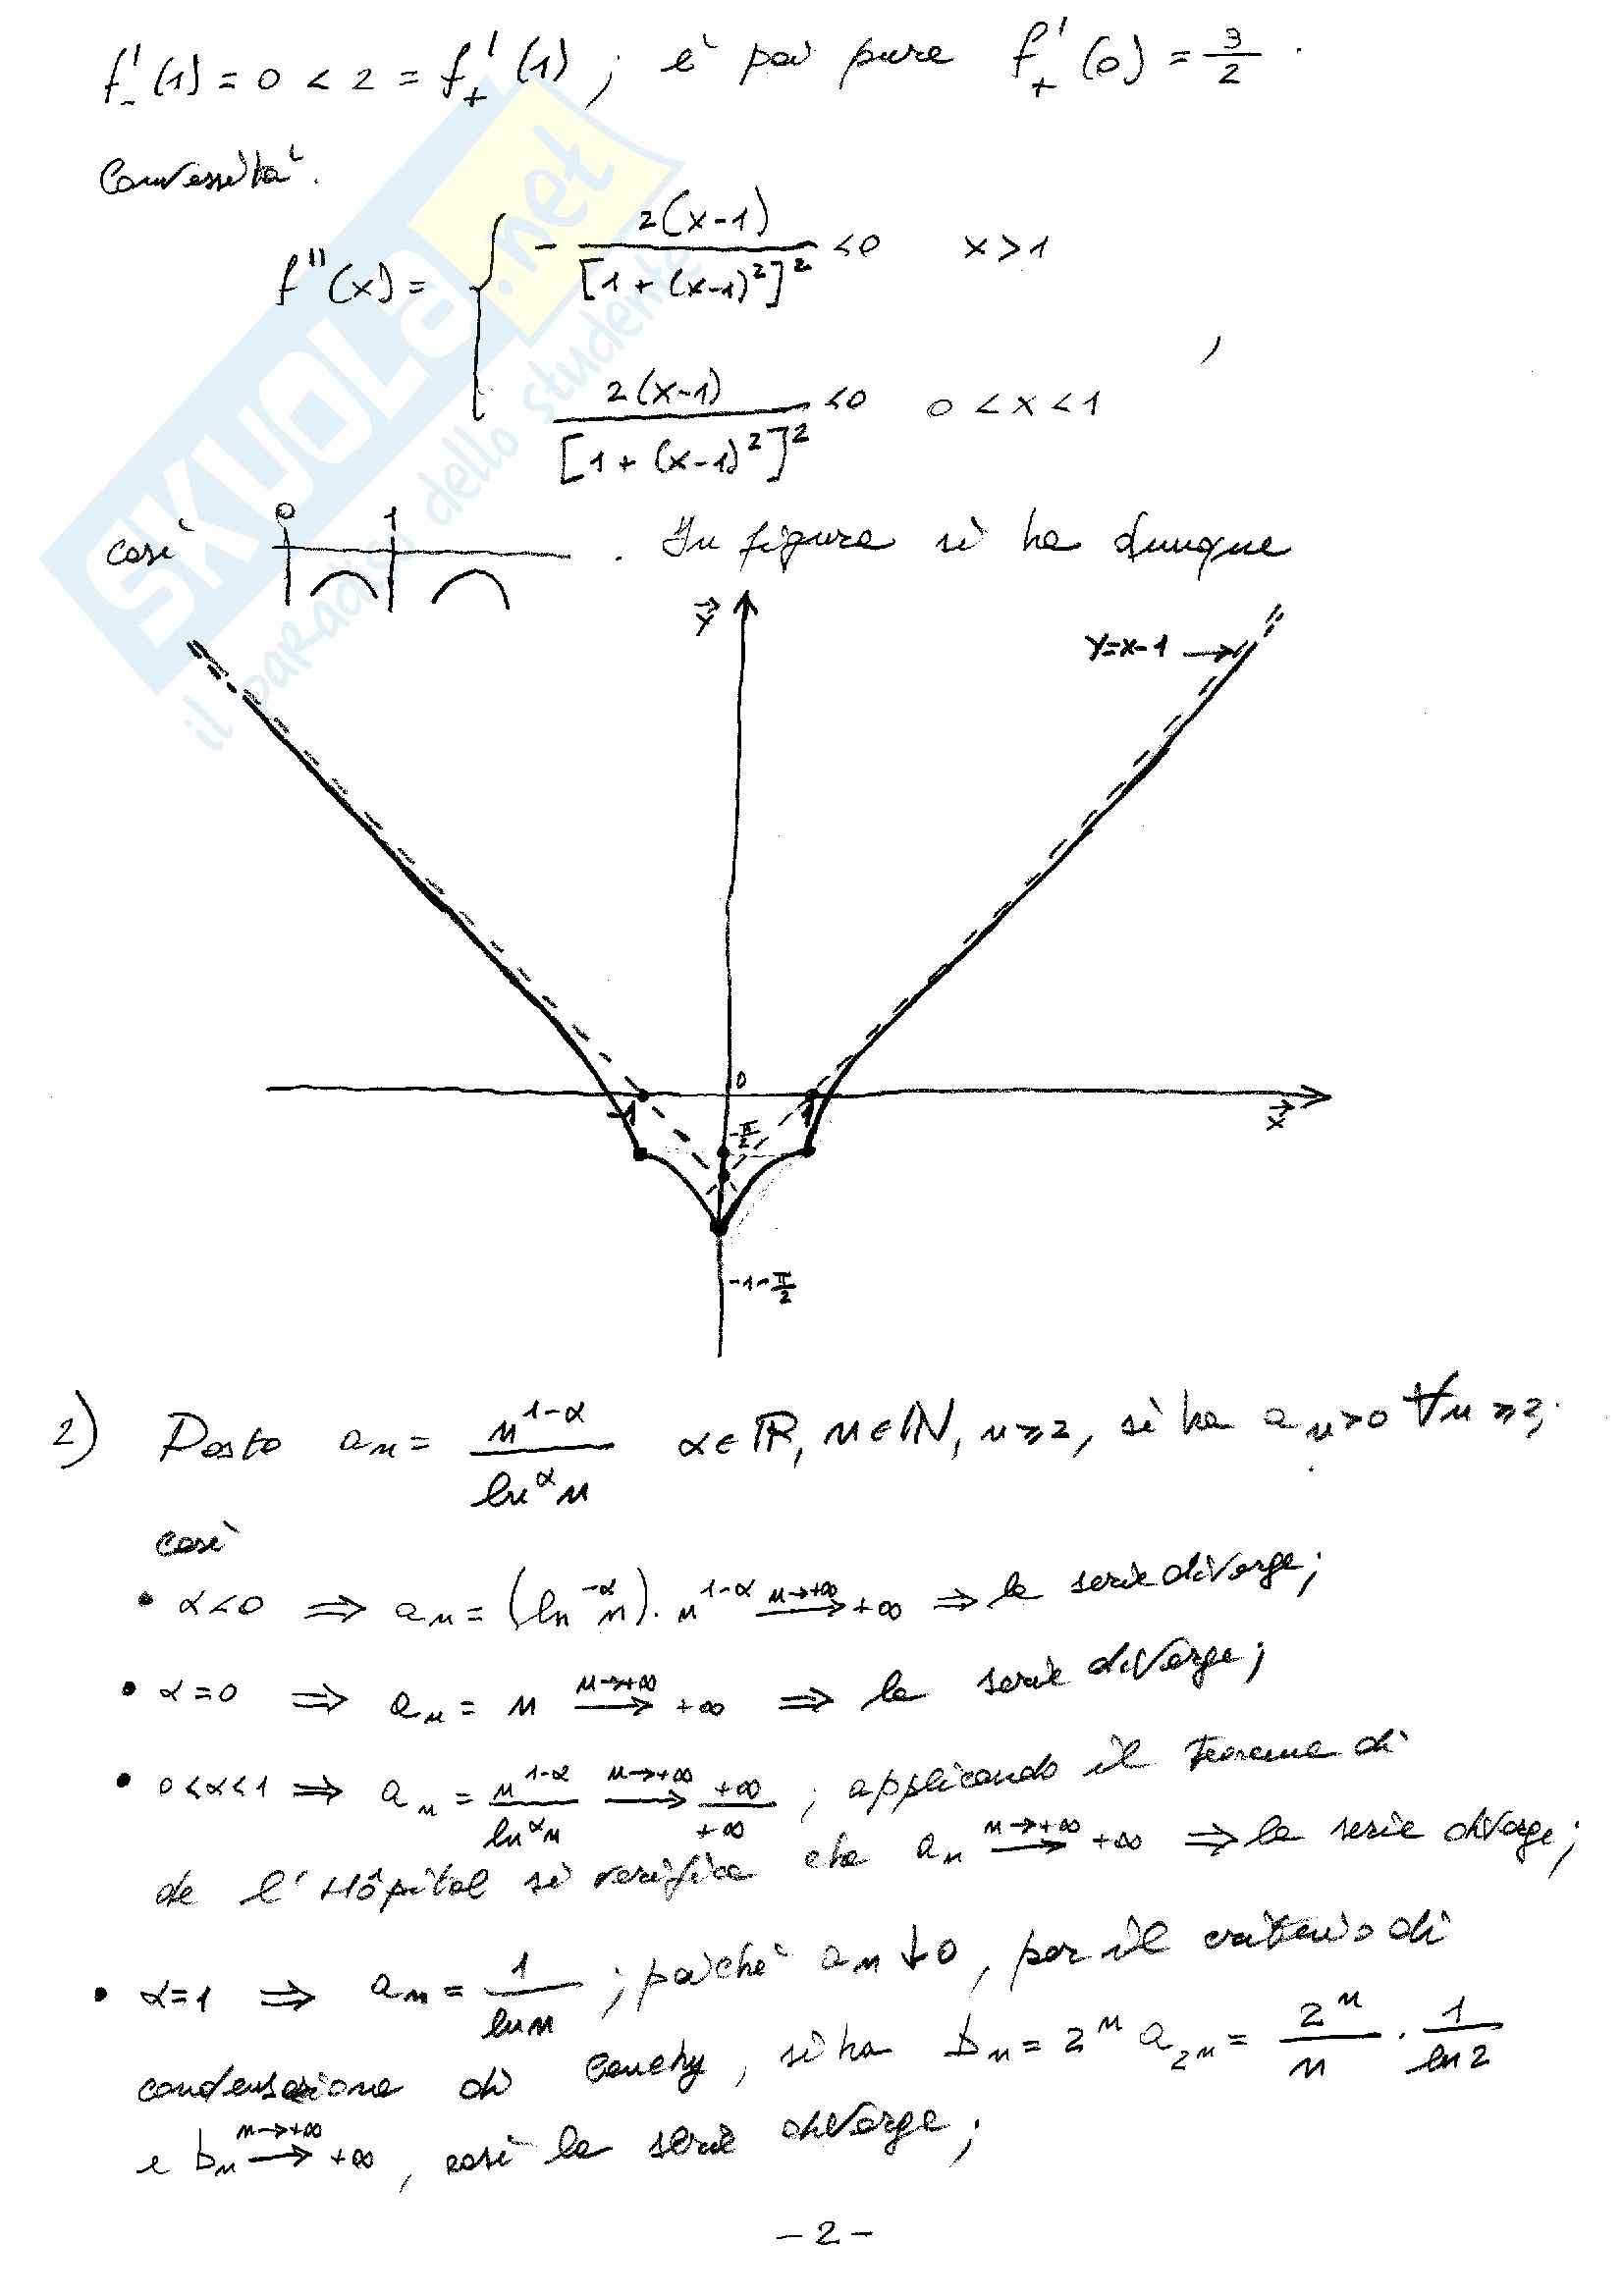 f'₋(1) = 0 < 2 = f'₊(1) ; è poi pure f'₊(0) = 3/2 .
Convessità.
f''(x) = { - 2(x-1) / [1+(x-1)²]² <0 x>1
2(x-1) / [1+(x-1)²]² <0 0<x<1 ,
così 0 1 . In figura si ha dunque
y
y=x-1
0
-1 1
x
-π/2
-1-π/2
2) Posto aₙ = n^(1-α) / ln^α n α∈ℝ, n∈ℕ, n≥2, si ha aₙ>0 ∀n≥2;
così
• α<0 ⇒ aₙ = (ln^(-α) n)·n^(1-α) →(n→+∞) +∞ ⇒ la serie diverge;
• α=0 ⇒ aₙ = n →(n→+∞) +∞ ⇒ la serie diverge;
• 0<α<1 ⇒ aₙ = n^(1-α) / ln^α n →(n→+∞) +∞/+∞ ; applicando il teorema di
de l'Hôpital si verifica che aₙ →(n→+∞) +∞ ⇒ la serie diverge;
• α=1 ⇒ aₙ = 1 / ln n ; poiché aₙ↓0, per il criterio di
condensazione di Cauchy, si ha bₙ = 2ⁿ a_(2ⁿ) = 2ⁿ/n · 1/ln 2
e bₙ →(n→+∞) +∞, così la serie diverge;
-2-
SKUOLA.net
il paradiso dello studente